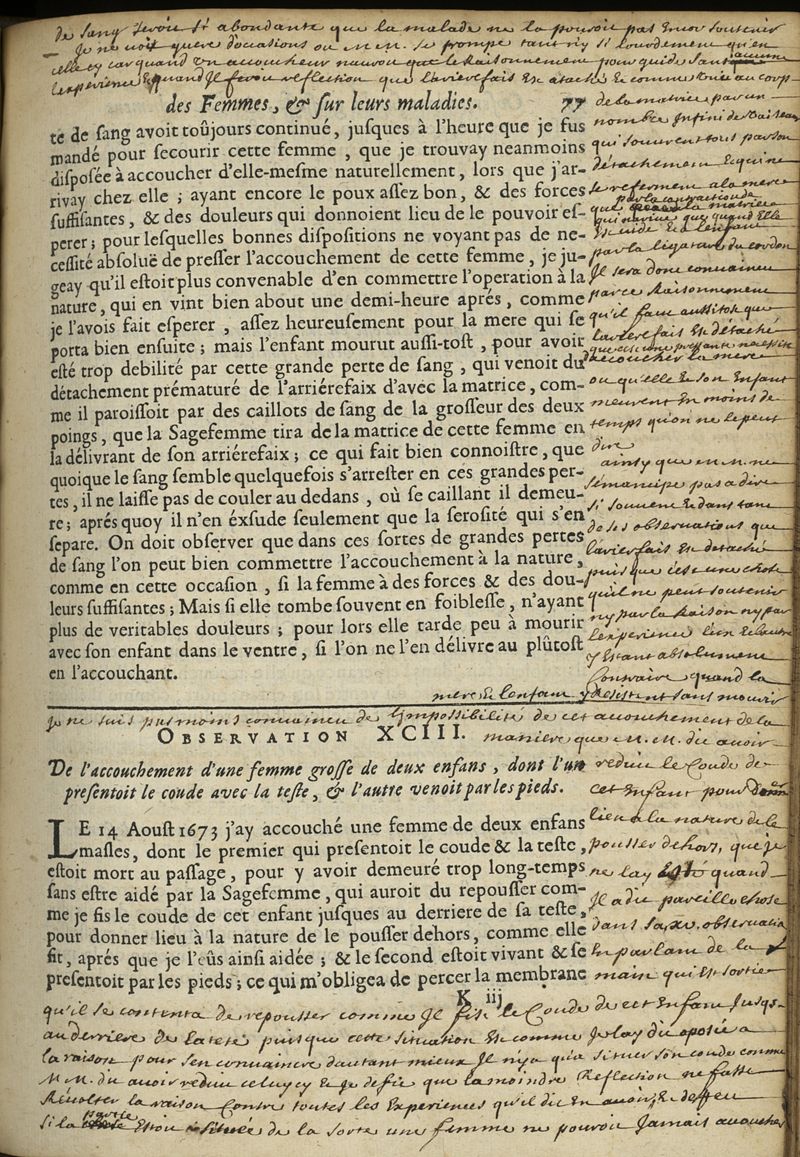 de sang seroit si abondante que la malade ne la pouroit pas encor soutenir
Je ne voit guere d'ocasions ou M. M. se trompe tant ny si lourdement qu'en
celle cy car quand un acoucheur n'auroit que le raisonnement pour guide sans aucune
experience quand Il feroit reflection que l'arierefaix est ataché et comme au corp
des Femmes, & sur leurs maladies. 77
te de sang avoit toûjours continué, jusques à l'heure que je fus
mandé pour secourir cette femme, que je trouvay neanmoins
disposée à accoucher d'elle-mesme naturellement, lors que j'ar-
rivay chez elle ; ayant encore le poux assez bon, & des forces
suffisantes, & des douleurs qui donnoient lieu de le pouvoir es-
perer ; pour lesquelles bonnes dispositions ne voyant pas de ne-
cessité absoluë de presser l'accouchement de cette femme, je ju-
geay qu'il estoit plus convenable d'en commettre l'operation à la
nature, qui en vint bien about une demi-heure aprés, comme
je l'avois fait esperer, assez heureusement pour la mere qui se
porta bien ensuite ; mais l'enfant mourut aussi-tost, pour avoir
esté trop debilité par cette grande perte de sang, qui venoit du
détachement prématuré de l'arriérefaix d'avec la matrice, com-
me il paroissoit par des caillots de sang de la grosseur des deux
poings, que la Sagefemme tira de la matrice de cette femme en
la délivrant de son arriérefaix ; ce qui fait bien connoistre, que
quoique le sang semble quelquefois s'arrester en ces grandes per-
tes, il ne laisse pas de couler au dedans, où se caillant il demeu-
re ; aprés quoy il n'en éxsude seulement que la serosité qui s'en
separe. On doit observer que dans ces sortes de grandes pertes
de sang l'on peut bien commettre l'accouchement à la nature,
comme en cette occasion, si la femme à des forces & des dou-
leurs suffisantes ; Mais si elle tombe souvent en foiblesse, n'ayant
plus de veritables douleurs ; pour lors elle tarde peu à mourir
avec son enfant dans le ventre, si l'on ne l'en délivre au plûtost
en l'accouchant.
de la matrice par un
nombre Infini de vaisseau
qui s'ouvrent tous par son
détachement et qui ne
se referment a la mere
par la contraction de
que la matrice
qui n'arive que quand Elle
est vuide et a l'enfant
par la ligature du cordon
Il sera donc convaincu
par ce raisonnement
qu'il faut aussitost que
l'arierefaix est détaché
acoucher la mere
ou qu'elle et son Enfant
meurent en moins de
temps qu'on ne le peut
dire
ainsy que M. M. ne
s'emancipe pas a dire
si souvent et dans tant
de ses observations que
l'arierfaix est détaché
puis que c'est une chose
qu'il ne peut soutenir
ny par la raison ny par
l'experience l'un et l'autre
y Estant absolument
Contraire quand la
mere et l'enfant y resistent sans mourir
Je ne suis pas moins convaincu de l'Impossibilité de cet acouchement de la
OBSERVATION XCIII.
maniere que M. M. dit avoir
De l'accouchement d'une femme grosse de deux enfans, dont l'un
presentoit le coude avec la teste, & l'autre venoit par les pieds.
LE 14 Aoust 1673 j'ay accouché une femme de deux enfans
masles, dont le premier qui presentoit le coude & la teste,
estoit mort au passage, pour y avoir demeuré trop long-temps
sans estre aidé par la Sagefemme, qui auroit du repousser com-
me je fis le coude de cet enfant jusques au derriere de sa teste,
pour donner lieu à la nature de le pousser dehors, comme elle
fit, aprés que je l'eûs ainsi aidée ; & le second estoit vivant & se
presentoit par les pieds ; ce qui m'obligea de percer la membrane
K iij
reduit le Coude de
cet Enfant pour donner
lieu a la nature de le
pousser dehors, que je
ne lay Esté quand
Il a dit pareille chose
dans sa observation
En parlant de la
main qui est sortie
qu'il se contenta de repousser comme Il fist le Coude de cet Enfant Jusqs.
au derriere de la teste puis que cette situation est comme Je lay dit oposée a
la raison pour s'en convaincre d'autant mieux Il n'y a qu'a situer son coude comme
M. M. dit avoir reduit celuy cy et Je defie que la moindre Reflection ne fasse
Révolter la raison Contre toutes les Experiences qu'il dit En avoir, En effect
si la partie Estoit située de la sorte une femme ne pouroit Jamais acoucher